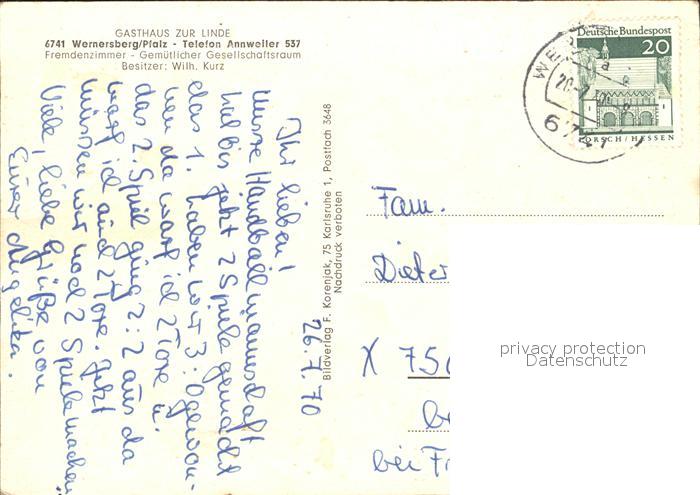 GASTHAUS ZUR LINDE
6741 Wernersberg/Pfalz - Telefon Annweiler 537
Fremdenzimmer - Gemütlicher Gesellschaftsraum
Besitzer: Wilh. Kurz
26.7.70
Ihr lieben!
Unsre Handballmannschaft
hat bis jetzt 2 Spiele gemacht
das 1. haben wir 3:0 gewon-
nen da warf ich 2 Tore u.
das 2. Spiel ging 2:2 aus da
warf ich auch 2 Tore. Jetzt
müssen wir noch 2 Spiele machen
Viele, liebe Grüße von
Eurer Angelika.
Bildverlag F. Korenjak, 75 Karlsruhe 1, Postfach 3648
Nachdruck verboten
Deutsche Bundespost
20
LORSCH/HESSEN
6741
Fam.
Dieter
X 75
bei Fr
privacy protection
Datenschutz